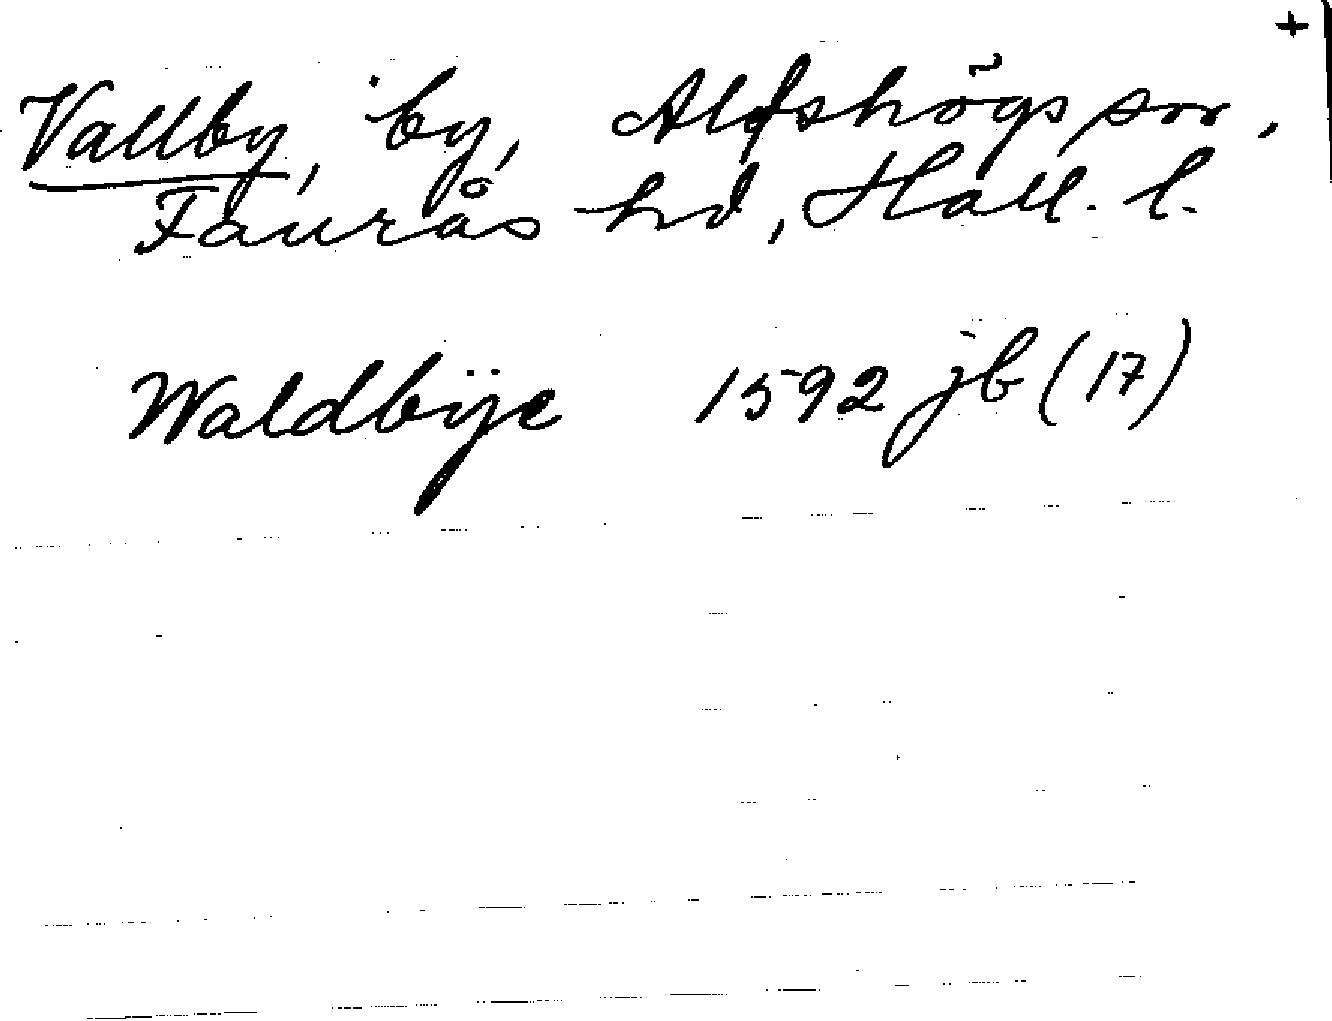 +
Vallby, by, Alfshögs sn,
Faurås hd, Hall. l.
Waldbÿe 1592 jb (17)